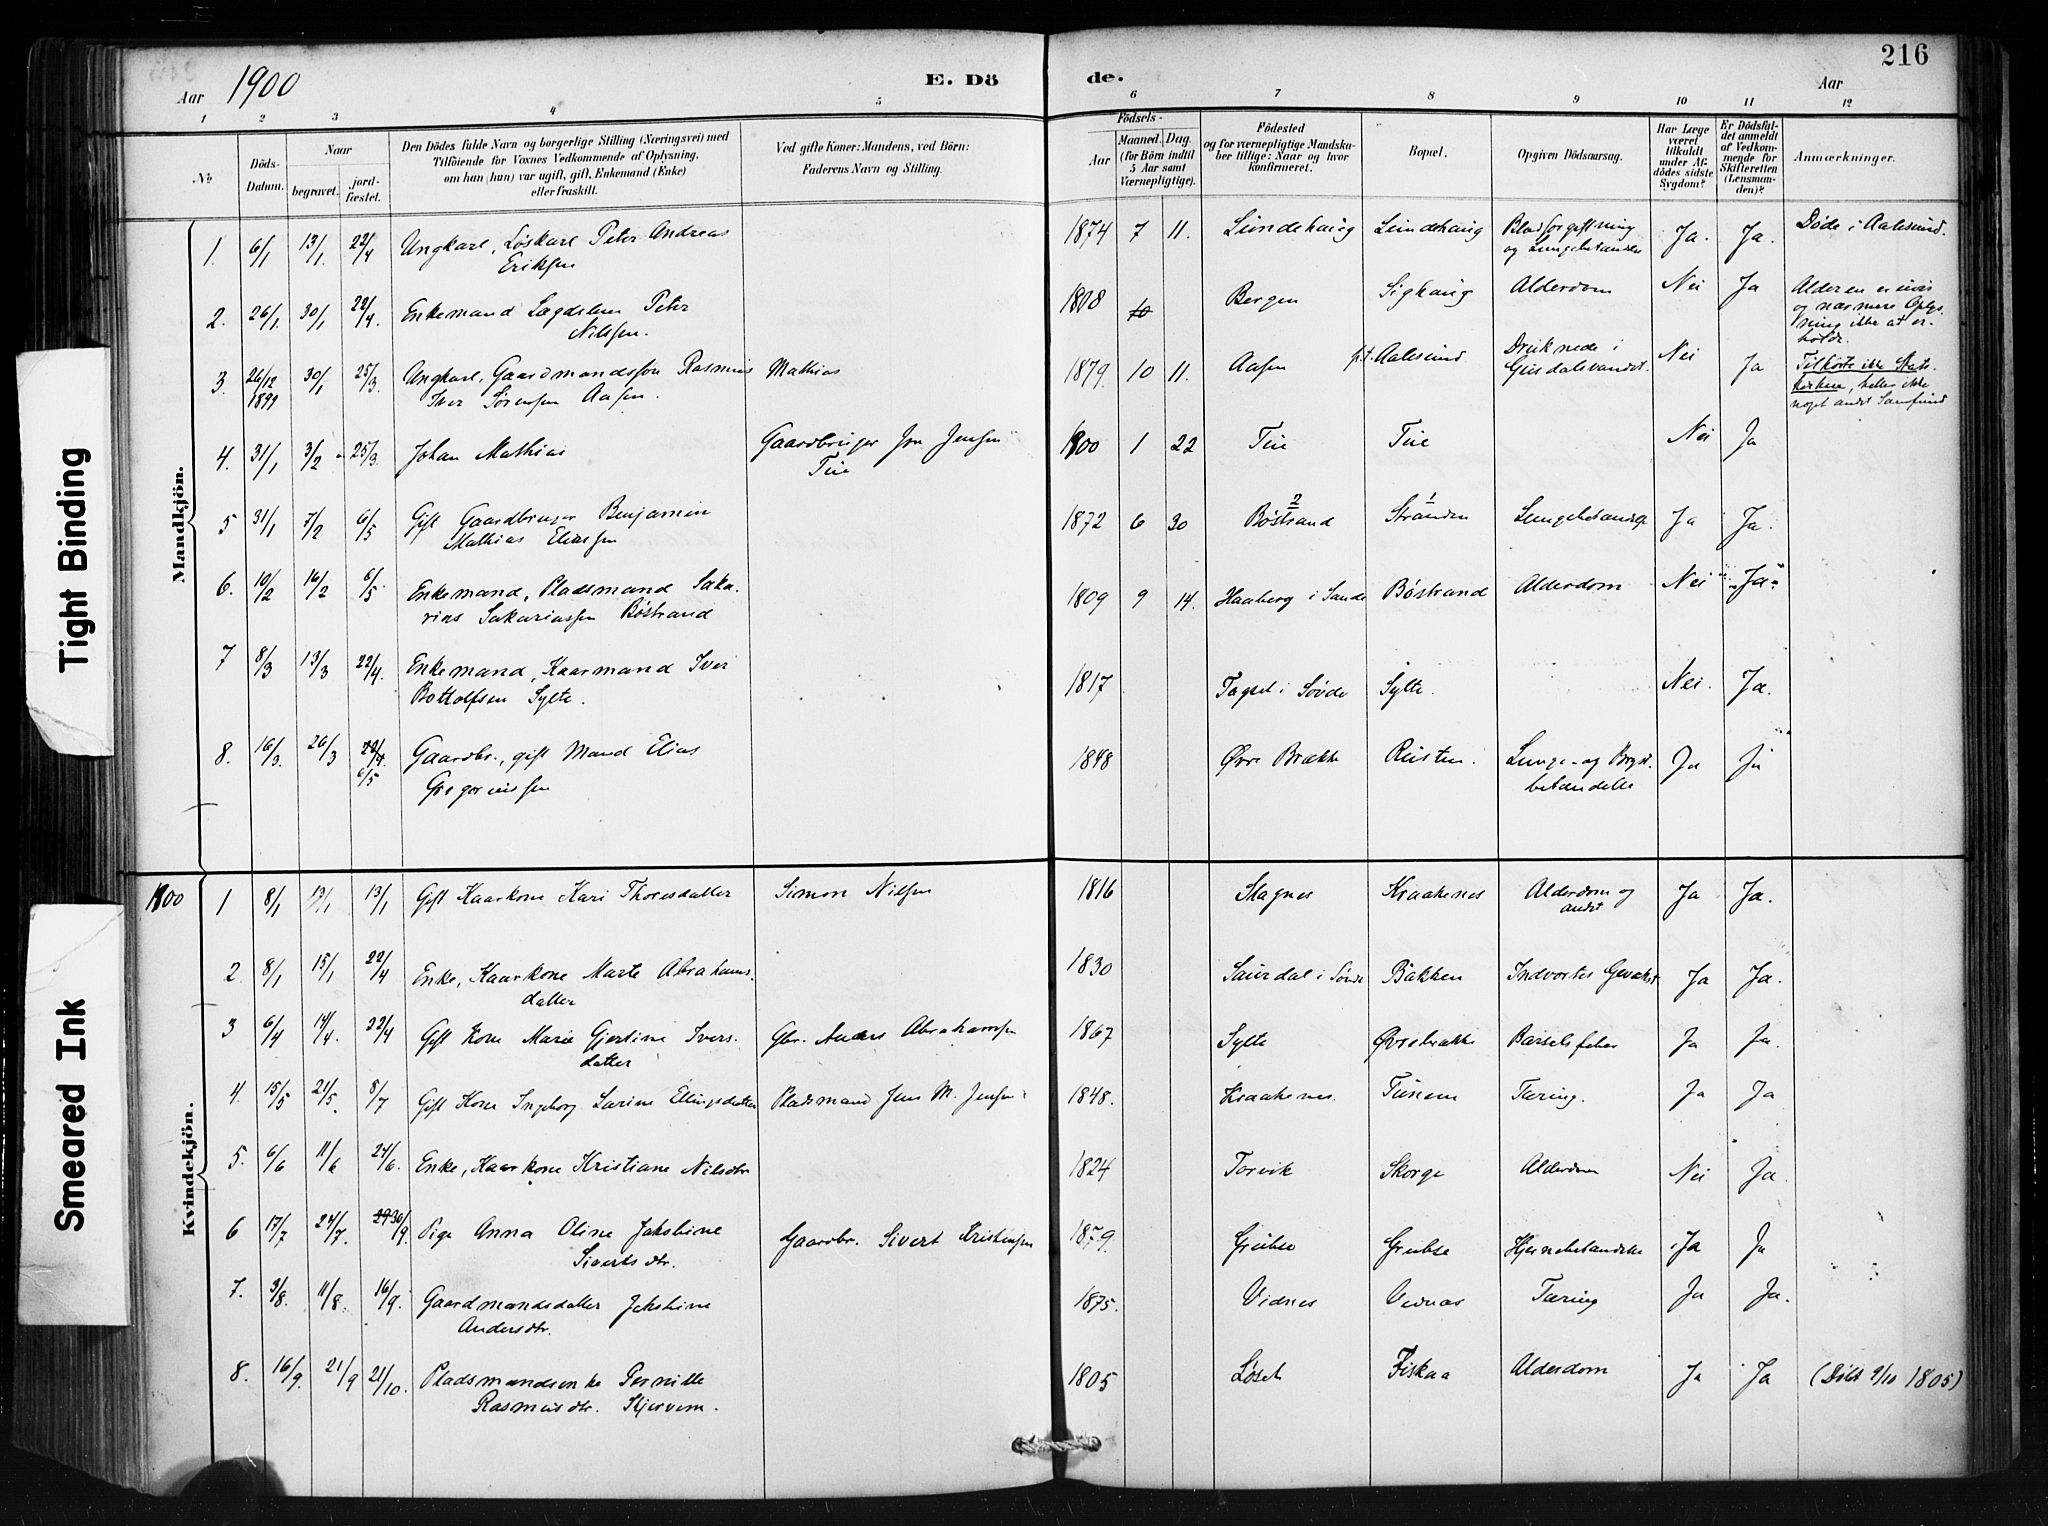 216
Aar 1900 E. Dö de. Aar
1 2 3 4 5 6 7 8 9 10 11 12
No.
Döds-Datum.
Naar
begravet.
jord-fæstet.
Den Dödes fulde Navn og borgerlige Stilling (Næringsvei) med
Tilföiende for Voxnes Vedkommende af Oplysning,
om han (hun) var ugift, gift, Enkemand (Enke)
eller fraskilt.
Ved gifte Koner: Mandens, ved Börn:
Faderens Navn og Stilling.
Födsels-
Aar
Maaned. Dag.
(for Börn indtil
5 Aar samt
Værnepligtige).
Födested
og for værnepligtige Mandska-
ber tillige: Naar og hvor
konfirmeret.
Bopæl.
Opgiven Dödsaarsag.
Har Læge
været
tilkaldt
under Af-
dödes sidste
Sygdom?
Er Dödsfal-
det anmeldt
af Vedkom-
mende for
Skifteretten
(Lensman-
den)?
Anmærkninger.
Mandkjön.
1. 6/1 13/1 22/4 Ungkarl, Løskarl Peter Andreas 1874 7 11. Lundehaug Lundehaug Blodforgiftning Ja. Ja. Døde i Aalesund.
Eriksen og Lungebetændelse
2. 26/1 30/1 22/4. Enkemand Lægdslem Peter 1808 10 Bergen Sighaug Alderdom Nei Ja Alderen er uvis
Nilssen. og nærmere Oplys-
ning ikke at er-
holde.
3 26/12 1899 30/1 25/3. Ungkarl, Gaardmandssøn Rasmus Mathias 1879. 10 11. Aasen p.t. Aalesund Druknede i Nei Ja Tilhørte ikke Stats-
Iver Sørensen Aasen. Gusdalsvandet kirken, heller ikke
noget andet Samfund
4. 31/1 3/2 25/3. Johan Mathias Gaardbruger Jon Jensen 1900 1 22 Tue Tue Nei Ja
Tue
5 31/1 7/2 6/5 Gift Gaardbruger Benjamin 1872 6 30 Bøstrand Stranden Lungebetændelse Ja Ja.
Mathias Eliassen
6. 10/2 16/2 6/5 Enkemand, Pladsmand Saka- 1809 9 14. Haaberg i Sande Bøstrand Alderdom Nei Ja
rias Sakariassen Bøstrand
7 8/3 13/3 22/4. Enkemand, Kaarmand Iver 1817 i Søvde Sylte. Nei. Ja.
Bottolfsen Sylte.
8. 16/3. 26/3 22/4. 6/5 Gaardbr., gift Mand Elias 1848 Øvre Brække Rusten. Lunge- og Bryst- Ja Ja
Gregoriussen betændelse
Kvindekjön.
1900 1 8/1 13/1 13/1 Gift Kaarkone Kari Thoresdatter Simon Nilsen 1816 Skagnes Kraakenes Alderdom og Ja Ja.
andet
2 8/1 15/1 22/4 Enke, Kaarkone Marte Abrahams- 1830 Saurdal i Søvde Bakken Indvortes Gevækst Ja Ja.
datter
3 6/4 14/4. 22/4 Gift Kone Marie Gjertine Ivers- Gbr. Anders Abrahamsen 1867 Sylte Øvrebrække Barselsfeber Ja Ja.
datter
4. 15/5 21/5. 8/7 Gift Kone Ingeborg Larine Ellingsdatter Pladsmand Jens M. Jensen 1848. Kraakenes. Tunem Tæring. Ja Ja
5. 6/6 11/6 24/6. Enke, Kaarkone Kristiane Nilsdtr 1824 Torvik Skorge Alderdom Nei Ja
6 17/7 24/7. 30/9 Pige Anna Oline Jakobine Gaardbr. Sivert Kristensen 1879. Grubse Grubse Hjernebetændelse Ja Ja
Sivertsdtr.
7. 3/8. 11/8. 16/9. Gaardmandsdatter Jakobine 1875. Vidnes Vidnes Tæring Ja Ja.
Andersdtr.
8. 16/9. 21/9 21/10. Pladsmandsenke Pernille 1805 Løset Fiskaa Alderdom Ja Ja (Døbt 9/10 1805)
Rasmusdtr. Skjervem.
Tight Binding
Smeared Ink